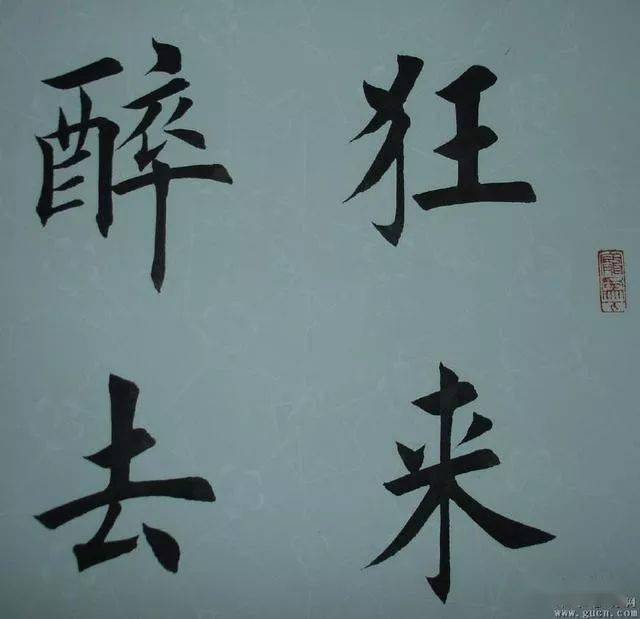 狂来
醉去
www.gucn.com